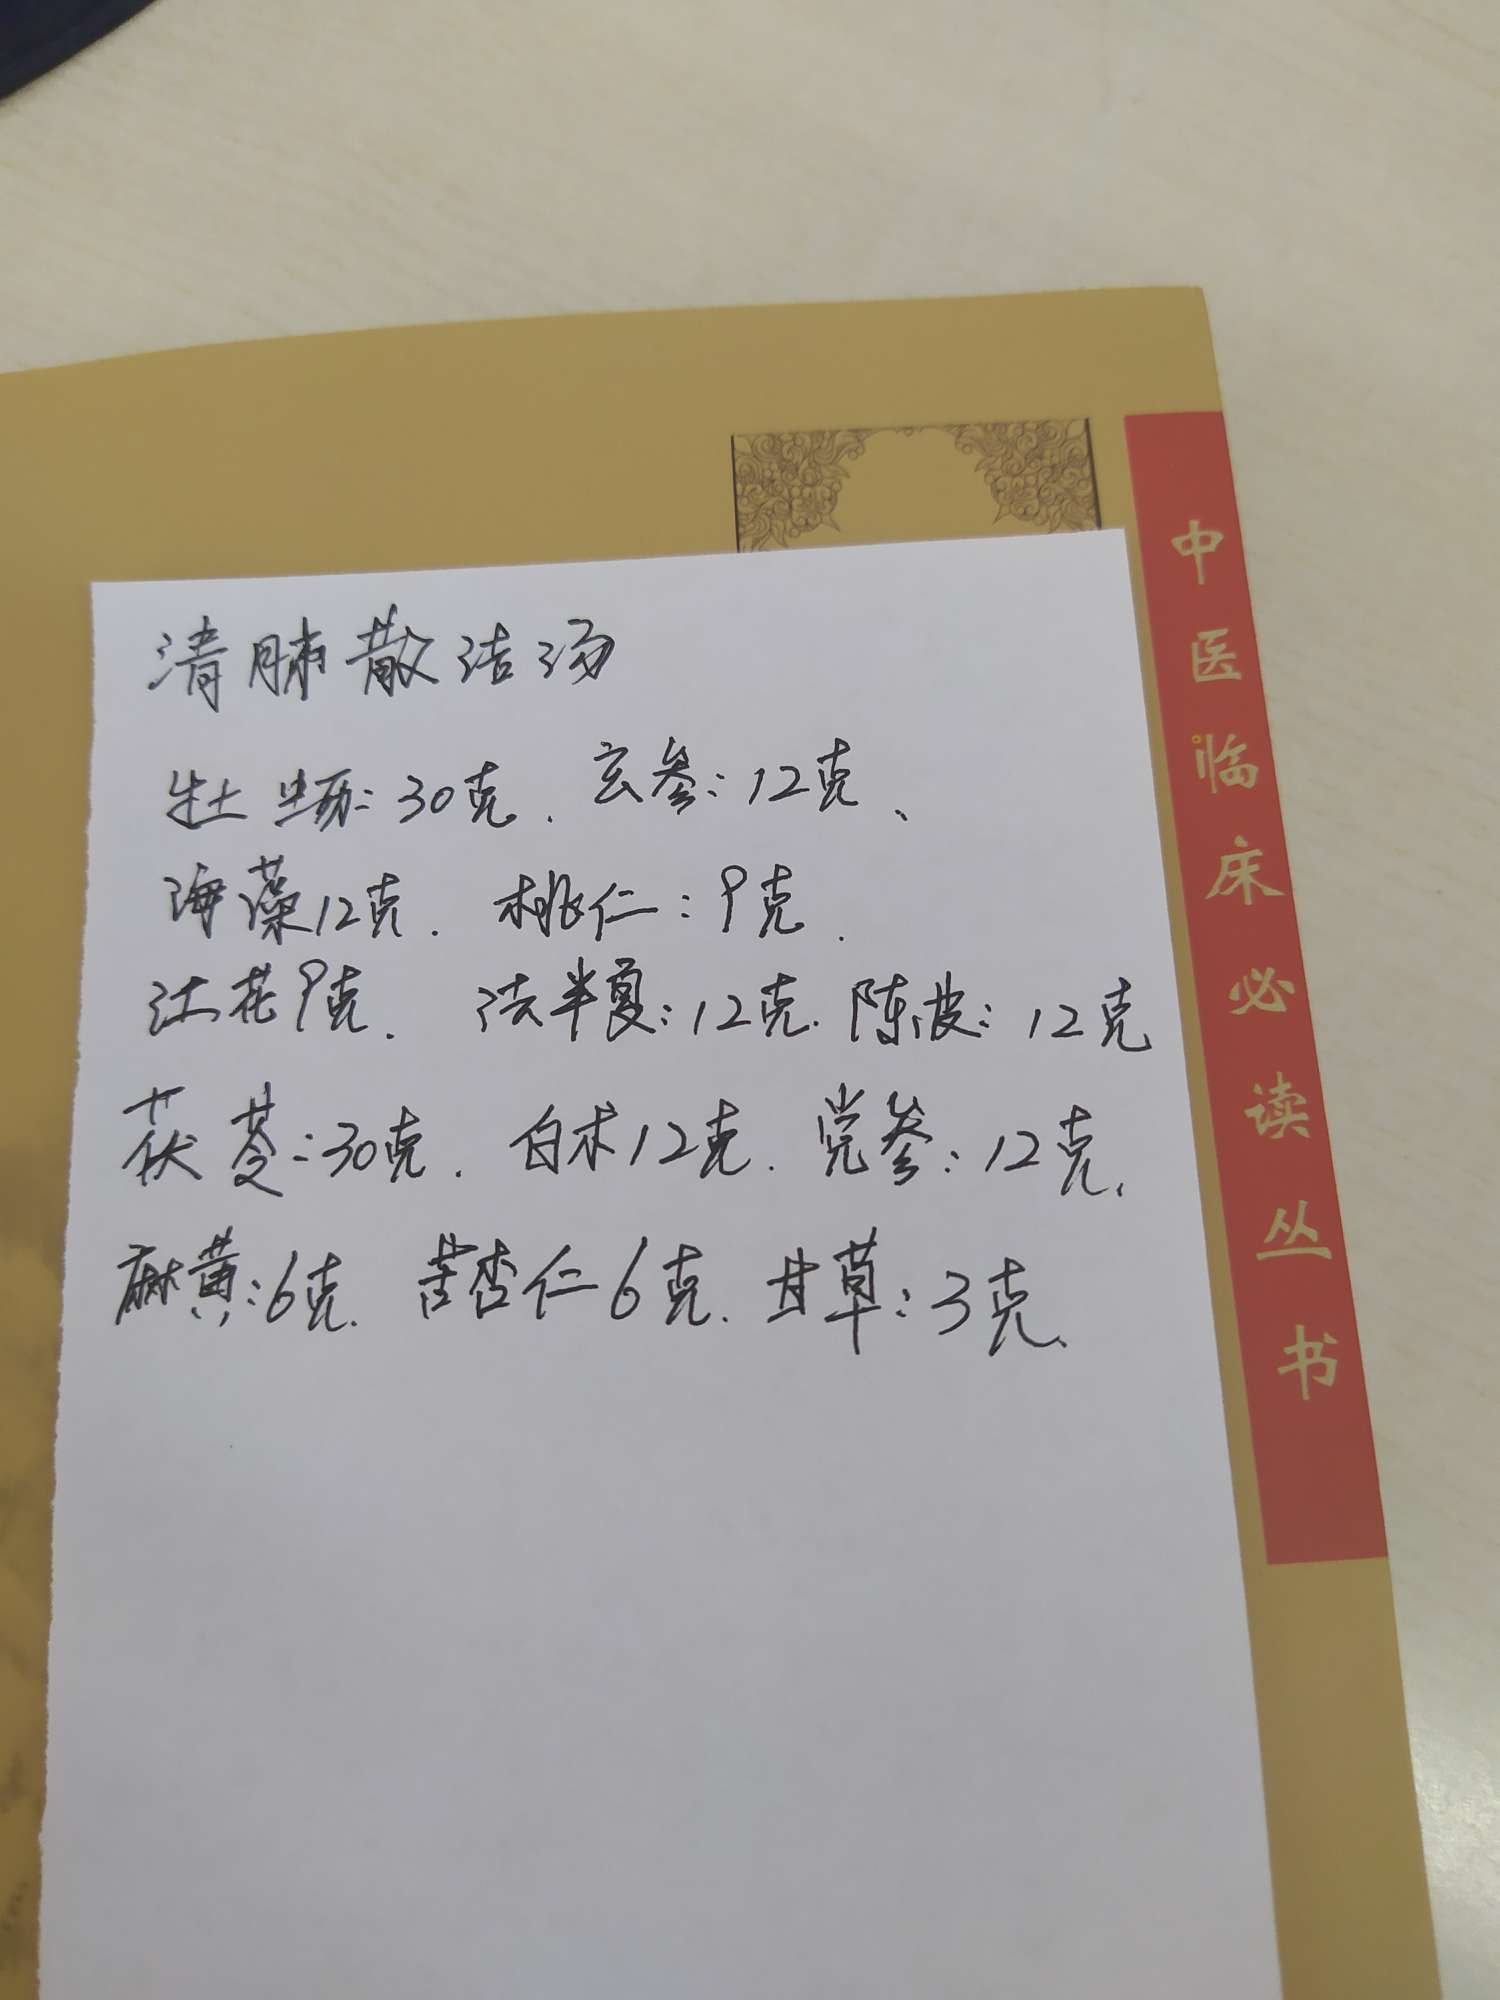 清肺散结汤
牡蛎：30克．玄参：12克、
海藻12克．桃仁：9克．
红花9克．法半夏：12克．陈皮：12克
茯苓：30克．白术12克．党参：12克、
麻黄：6克．苦杏仁6克．甘草：3克、
中医临床必读丛书